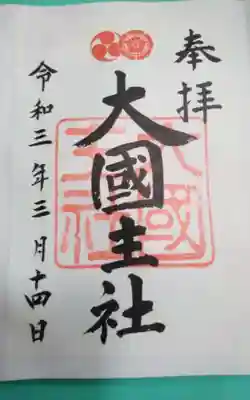 奉拝
大國主社
令和三年三月十四日
大國
主社